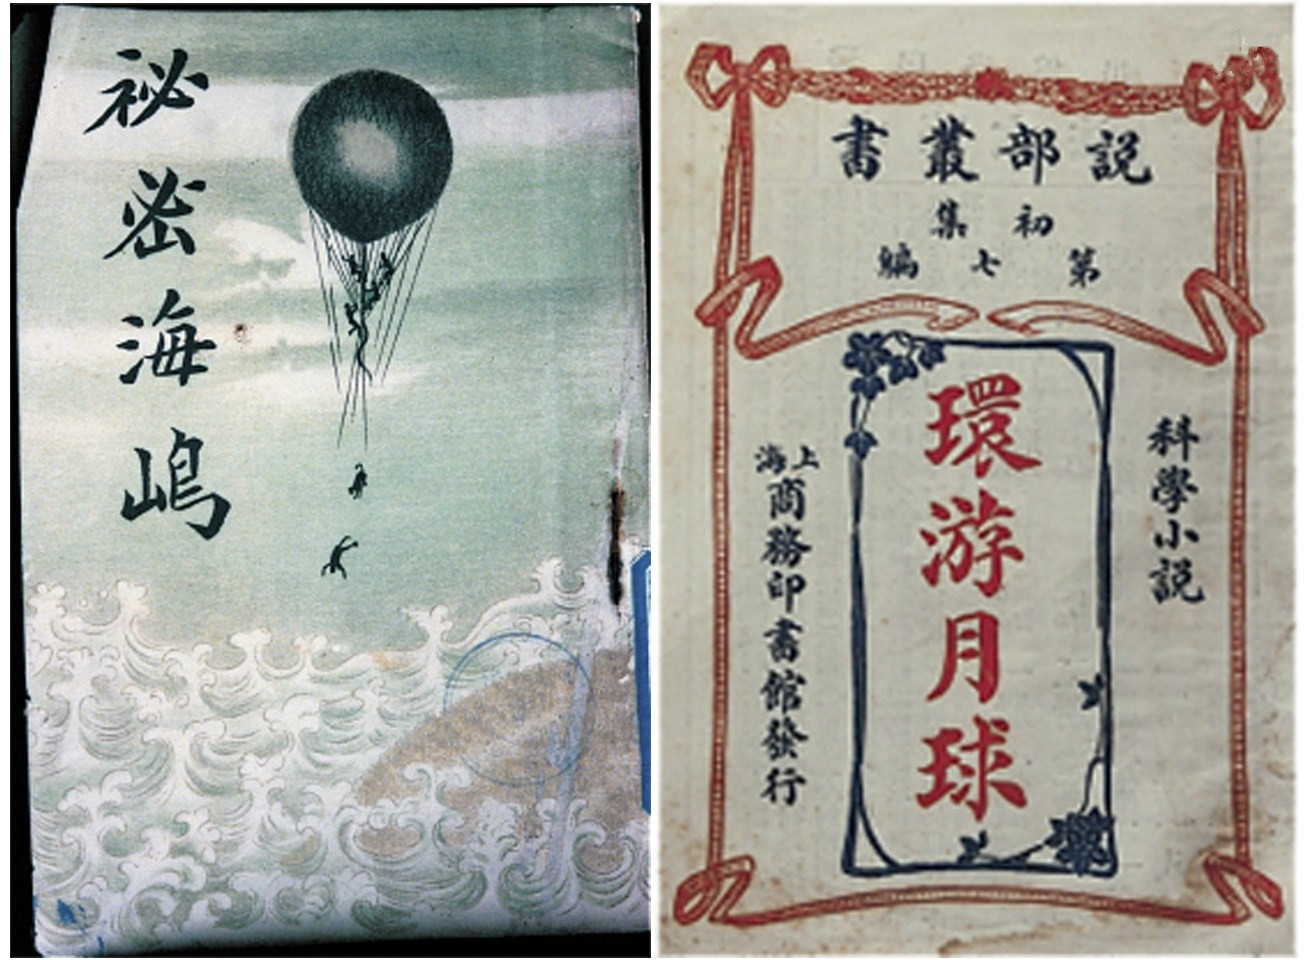 祕密海嶋
說部叢書
初集
第七編
科學小說
環游月球
上海商務印書館發行